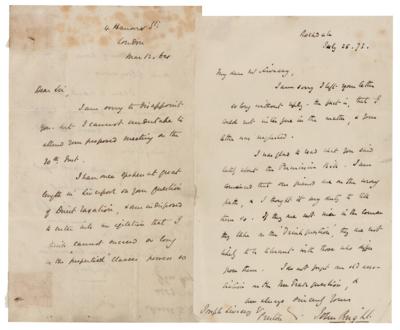 4 Hanover St.
London
Mar. 12. 64
Dear Sir,
I am sorry to disappoint
you but I cannot undertake to
attend your proposed meeting on the
30th Inst.
I have once spoken at great
length in Liverpool on your question
of Direct Taxation, & am indisposed
to enter into an agitation that I
cannot succeed so long
as the "propertied" classes possess so
Rochdale
July 25. 73.
My dear Mr Livesey,
I am sorry I left your letter
so long without reply - the fact is, that I
could not interfere in the matter, & your
letter was neglected.
I was glad to read what you said
lately about the Permissive Bill. I am
convinced that our friends are on the wrong
path, & I thought it my duty to tell
them so. If they are not wise in the course
they take on the "Drink question", they are not
likely to be tolerant with those who differ
from them. I do not forget our old
in the Free Trade question, &
am always sincerely yours
Joseph Livesey Esq
Preston
John Bright.